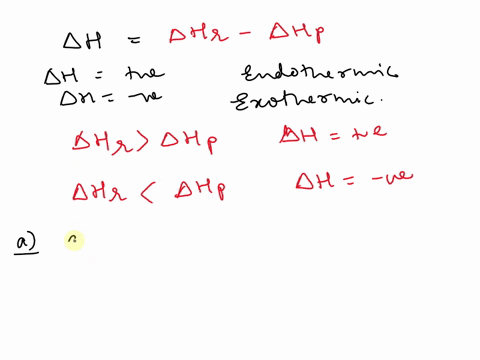 ΔH = ΔHr - ΔHp
ΔH = +ve Endothermic
ΔH = -ve Exothermic.
ΔHr > ΔHp ΔH = +ve
ΔHr < ΔHp ΔH = -ve
a)